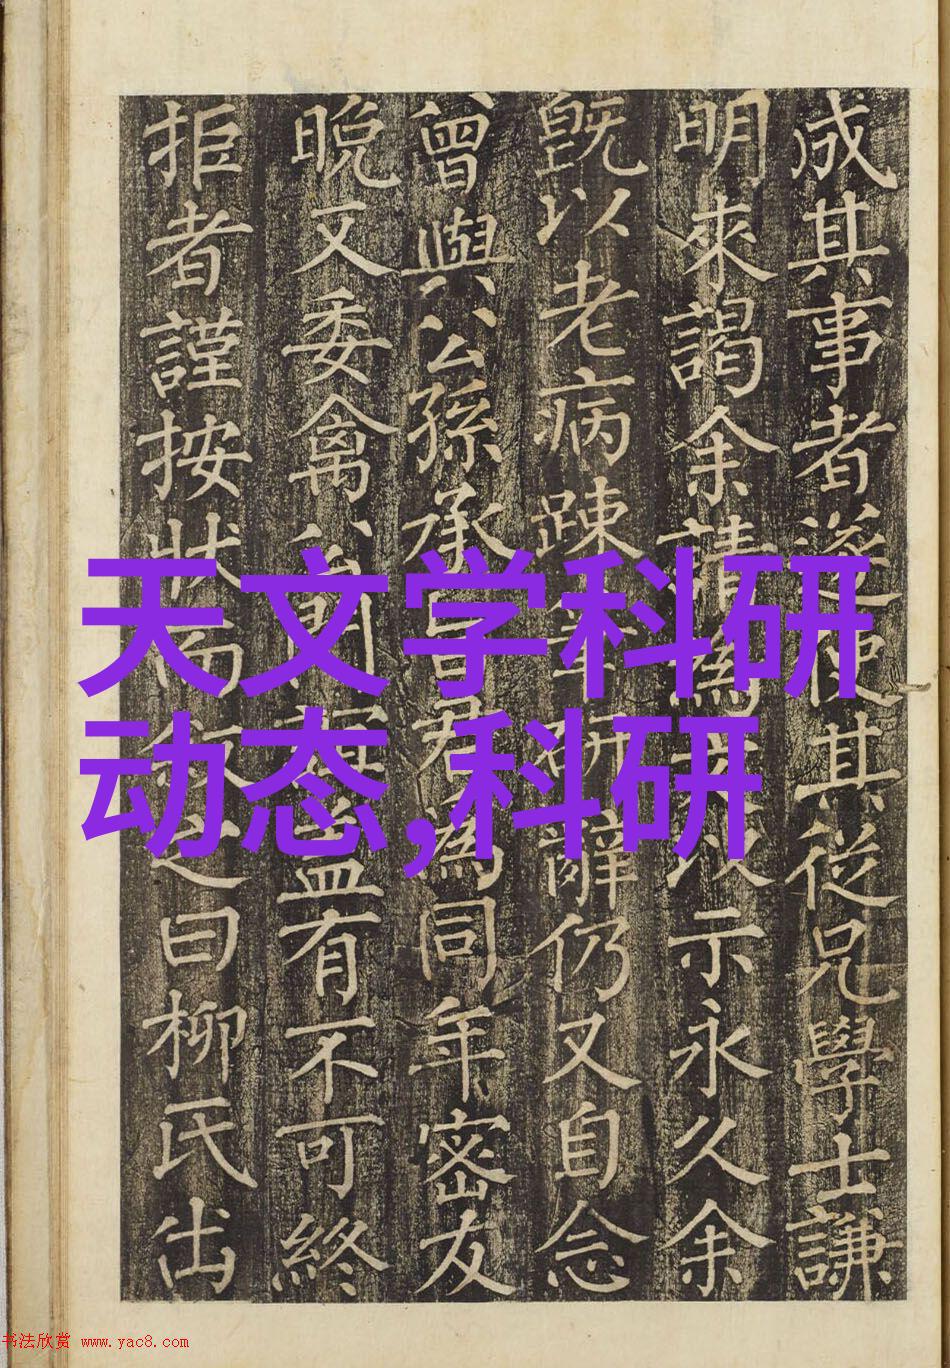 成其事者遂使其從兄學士謙
明來謁余請為文以示永久余
既以老病踈筆研辭仍又自念
曾與公孫承旨君為同年密友
晩又委禽門益有不可終
拒者謹按狀而敘之曰柳氏出
天文学科研
动态,科研
书法欣赏 www.yac8.com